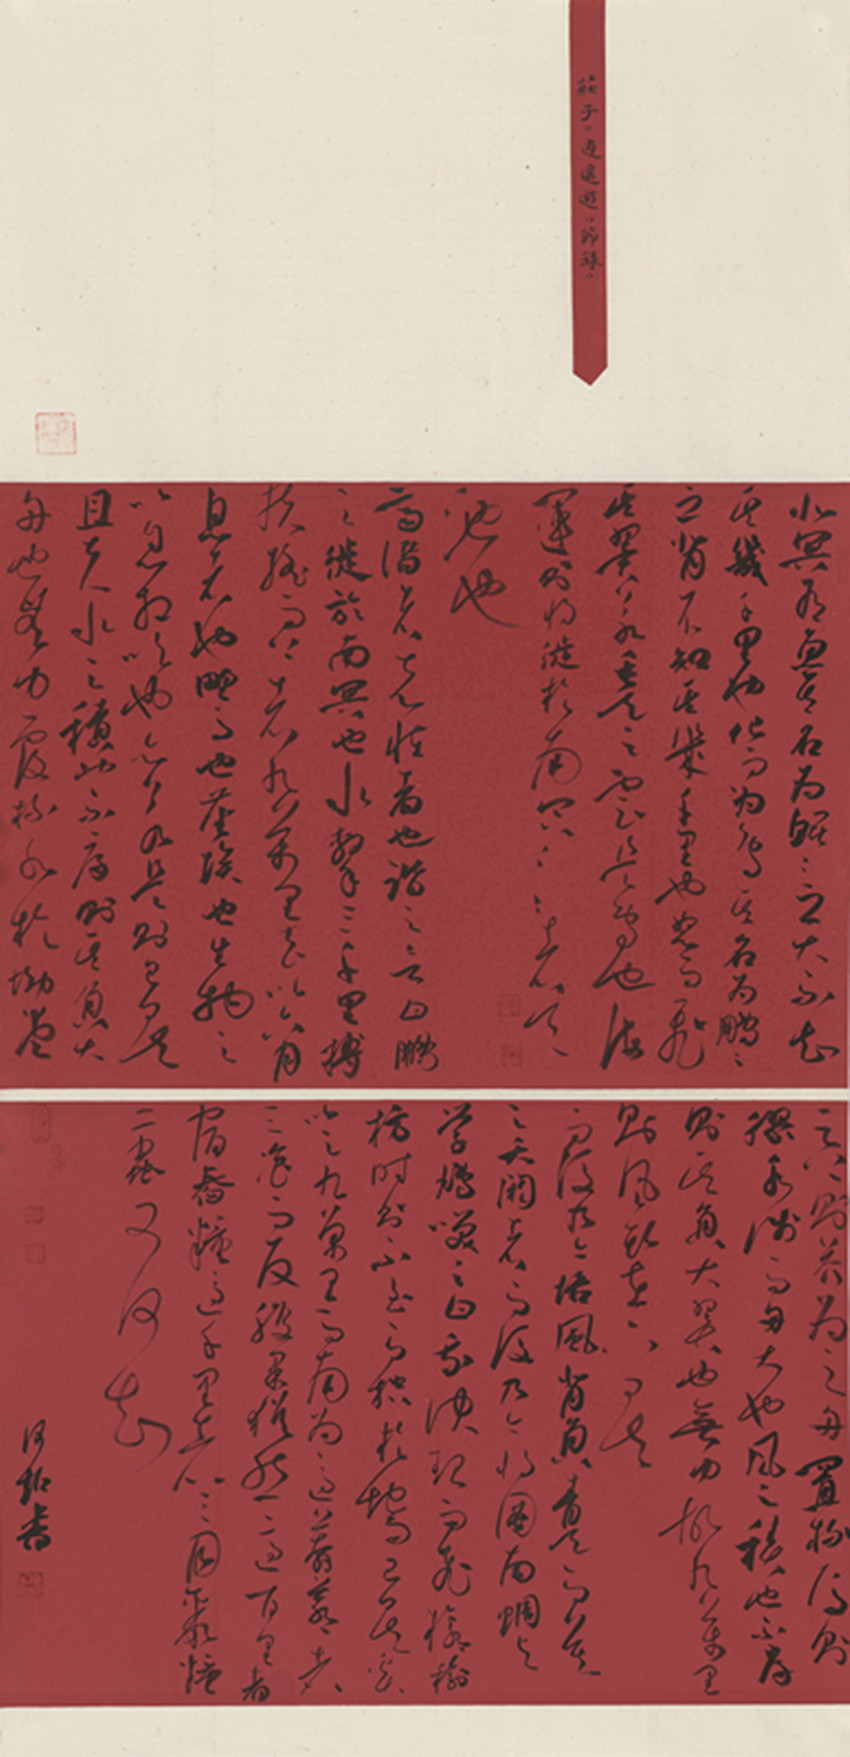 莊子·逍遙遊·節錄
北冥有魚其名為鯤〻之大不知
其幾千里也化而為鳥其名為鵬〻
之背不知其幾千里也怒而飛
其翼若垂天之雲是鳥也海
運則將徙於南冥〻〻者天
池也
齊諧者志怪者也諧之言曰鵬
之徙於南冥也水擊三千里摶
扶搖而上者九萬里去以六月
息者也野馬也塵埃也生物之
以息相吹也亦若是則已矣
且夫水之積也不厚則其負大
舟也無力覆杯水於坳堂
之上則芥為之舟置杯焉則
膠水淺而舟大也風之積也不厚
則其負大翼也無力故九萬里
則風斯在下矣
而後乃今培風背負青天而莫
之夭閼者而後乃今將圖南蜩與
學鳩笑之曰我決起而飛搶榆
枋時則不至而控於地而已矣奚
以之九萬里而南為適莽蒼者
三飡而反腹果猶然適百里者
宿舂糧適千里者三月聚糧
二蟲又何知